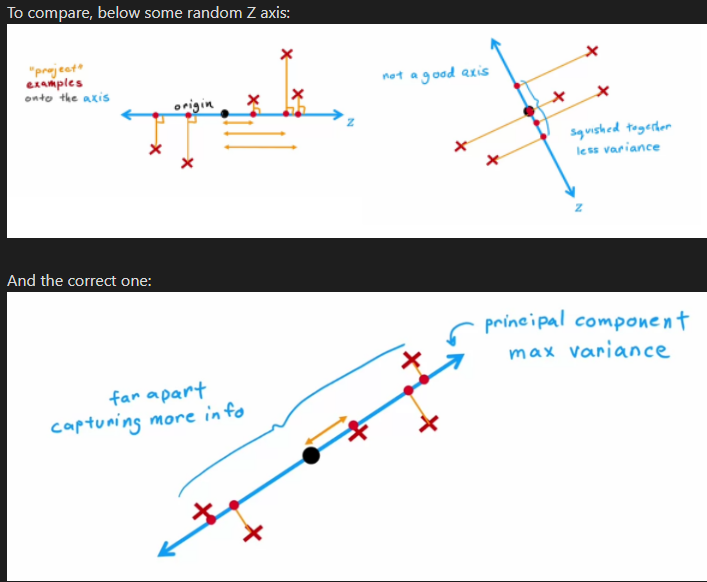 To compare, below some random Z axis:
"project"
examples
onto the axis
origin
z
not a good axis
squished together
less variance
z
And the correct one:
principal component
max variance
far apart
capturing more info